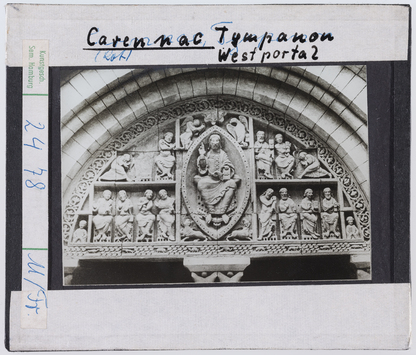 Carennac, Tympanon
(Lot)
Westportal
Kunstgesch.
Sem. Hamburg
24 78
M/Fr.